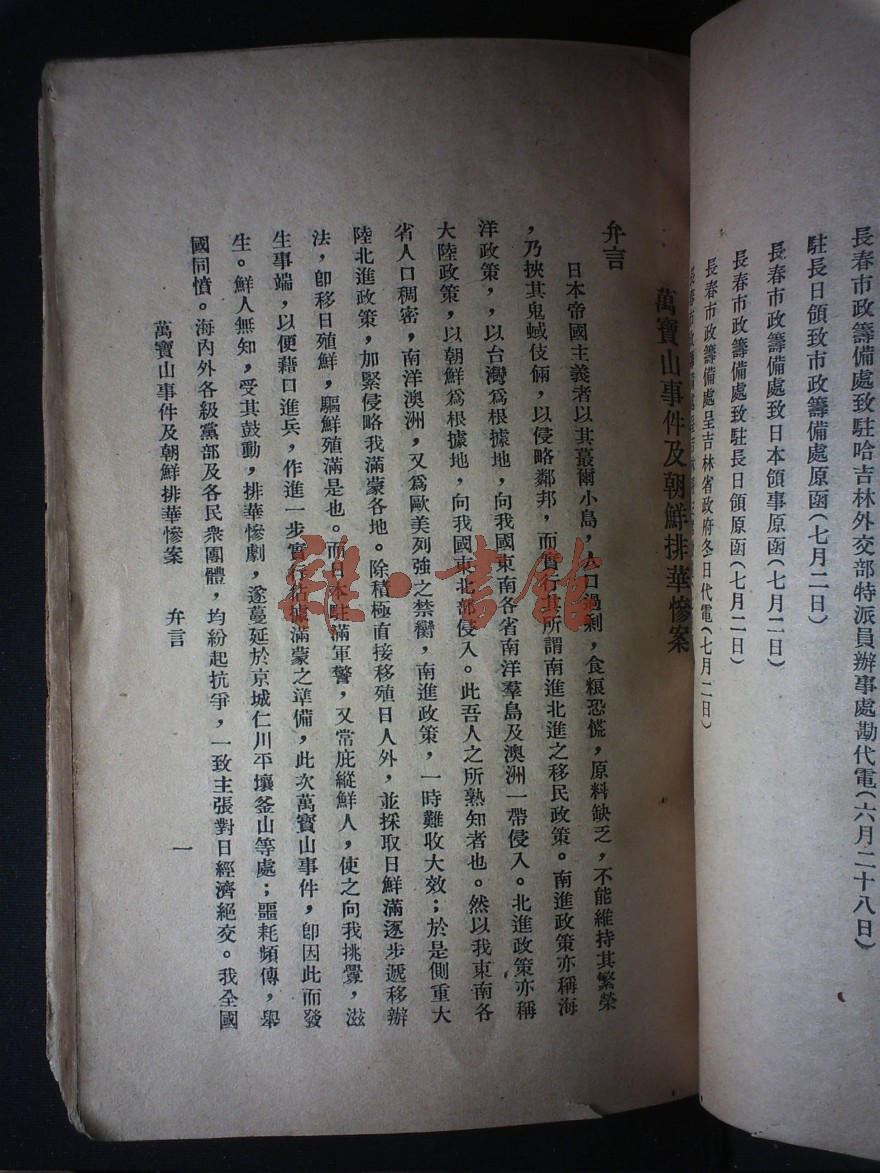 長春市政籌備處致駐哈吉林外交部特派員辦事處勘代電(六月二十八日)
駐長日領致市政籌備處原函(七月二日)
長春市政籌備處致日本領事原函(七月二日)
長春市政籌備處致駐長日領原函(七月二日)
長春市政籌備處呈吉林省政府冬日代電(七月二日)
萬寶山事件及朝鮮排華慘案
弁言
日本帝國主義者以其蕞爾小島,人口過剩,食粮恐慌,原料缺乏,不能維持其繁榮
,乃挾其鬼蜮伎倆,以侵略鄰邦,而實行其所謂南進北進之移民政策。南進政策亦稱海
洋政策,,以台灣爲根據地,向我國東南各省南洋羣島及澳洲一帶侵入。北進政策亦稱
大陸政策,以朝鮮爲根據地,向我國東北部侵入。此吾人之所熟知者也。然以我東南各
省人口稠密,南洋澳洲,又爲歐美列強之禁臠,南進政策,一時難收大效;於是側重大
陸北進政策,加緊侵略我滿蒙各地。除積極直接移殖日人外,並採取日鮮滿逐步遞移辦
法,卽移日殖鮮,驅鮮殖滿是也。而日本駐滿軍警,又常庇縱鮮人,使之向我挑釁,滋
生事端,以便藉口進兵,作進一步實行佔據滿蒙之準備,此次萬寶山事件,卽因此而發
生。鮮人無知,受其鼓動,排華慘劇,遂蔓延於京城仁川平壤釜山等處;噩耗頻傳,舉
國同憤。海內外各級黨部及各民衆團體,均紛起抗爭,一致主張對日經濟絕交。我全國
萬寶山事件及朝鮮排華慘案 弁言
一
雜·書館